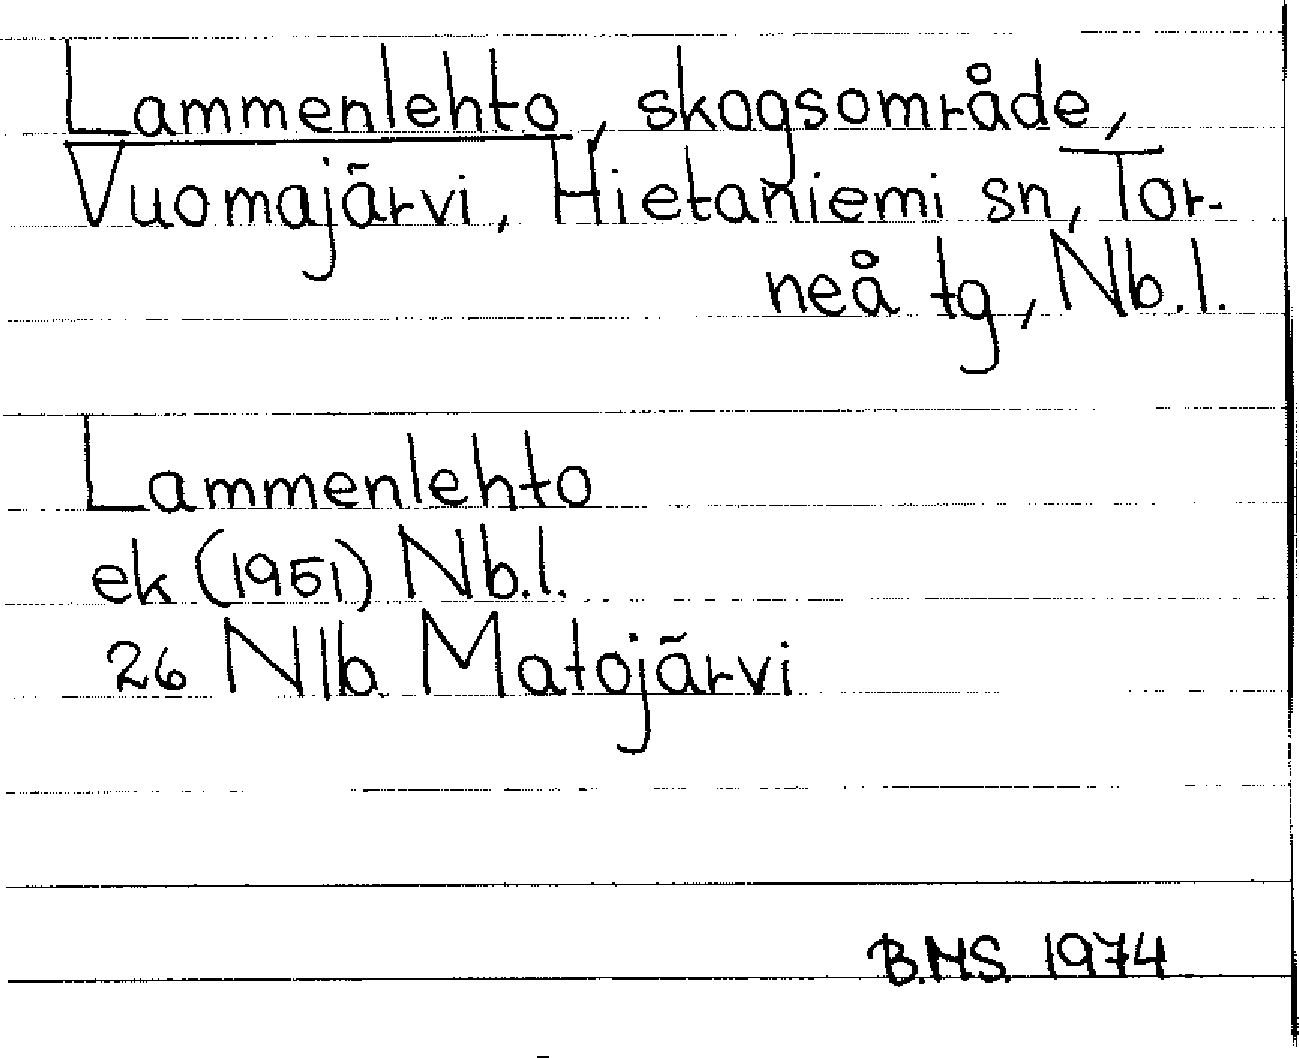 Lammenlehto, skogsområde,
Vuomajärvi, Hietaniemi sn, Tor-
neå tg, Nb.l.
Lammenlehto
ek (1951) Nb.l.
26 Nlb Matojärvi
B.N.S. 1974